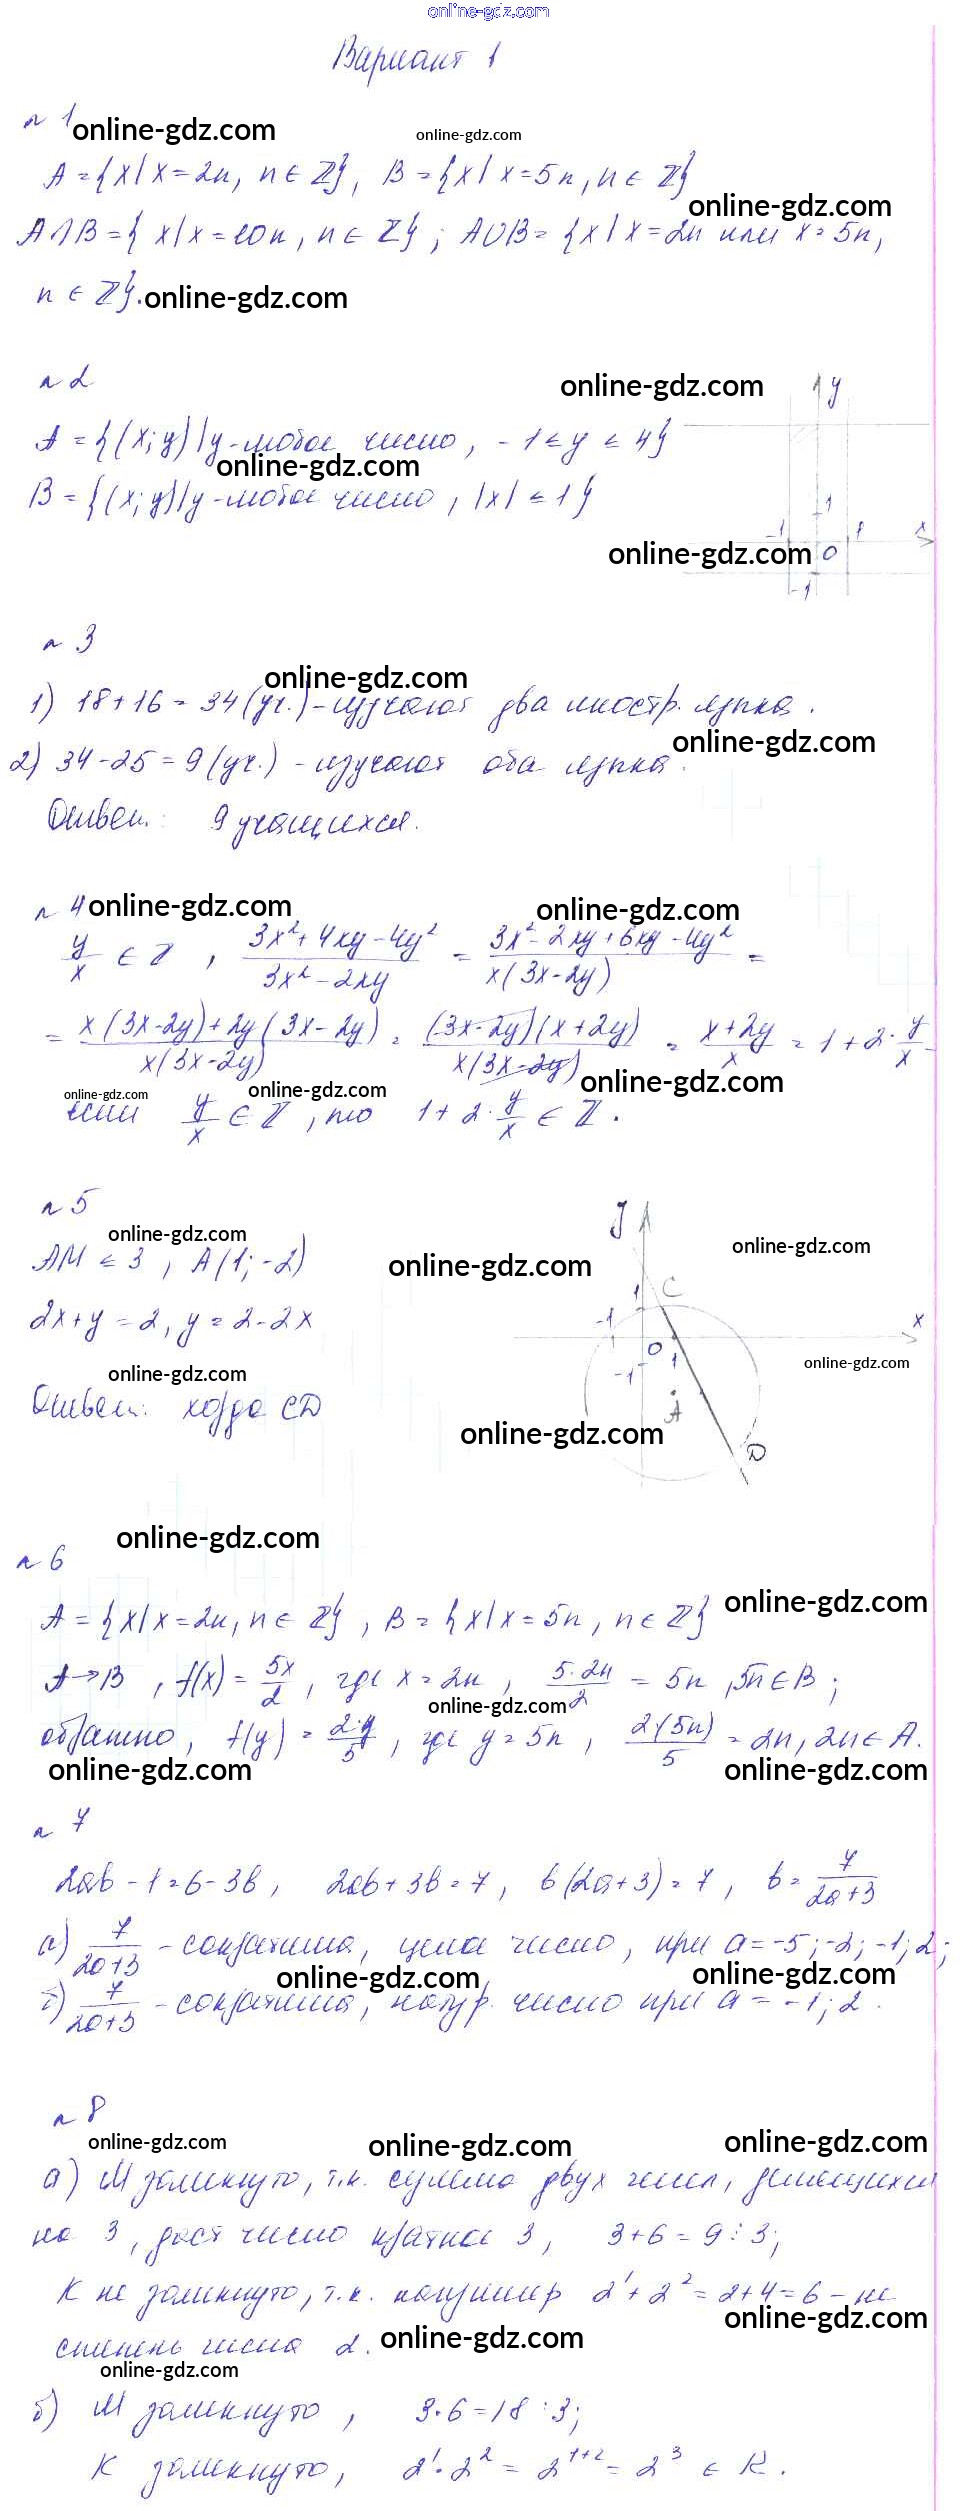 online-gdz.com
Вариант 1
n 1 online-gdz.com online-gdz.com
A = {x | x = 2n, n ∈ Z}, B = {x | x = 5n, n ∈ Z}
online-gdz.com
A ∩ B = { x | x = 10n, n ∈ Z} ; A ∪ B = {x | x = 2n или x = 5n,
n ∈ Z}. online-gdz.com
n 2 online-gdz.com
A = {(x; y) | y - любое число, -1 ≤ y ≤ 4}
online-gdz.com
B = {(x; y) | y - любое число, |x| ≤ 1}
online-gdz.com
1 y
1
-1 0 1 x
-1
n 3
online-gdz.com
1) 18 + 16 = 34 (уч.) - изучают два иностр. языка.
online-gdz.com
2) 34 - 25 = 9 (уч.) - изучают оба языка.
Ответ: 9 учащихся.
n 4 online-gdz.com online-gdz.com
y/x ∈ Z, (3x² + 4xy - 4y²)/(3x² - 2xy) = (3x² - 2xy + 6xy - 4y²)/(x(3x - 2y)) =
= (x(3x - 2y) + 2y(3x - 2y))/(x(3x - 2y)) = ((3x - 2y)(x + 2y))/(x(3x - 2y)) = (x + 2y)/x = 1 + 2 · y/x -
online-gdz.com online-gdz.com online-gdz.com
если y/x ∈ Z, то 1 + 2 · y/x ∈ Z.
n 5
online-gdz.com
AM ≤ 3, A(1; -2)
online-gdz.com online-gdz.com
2x + y = 2, y = 2 - 2x
online-gdz.com online-gdz.com
Ответ: хорда CD
online-gdz.com
y
1 C
-1 0 1 x
-1
A
D
online-gdz.com
n 6
A = {x | x = 2n, n ∈ Z}, B = {x | x = 5n, n ∈ Z}
online-gdz.com
A → B, f(x) = 5x/2, где x = 2n, 5·2n/2 = 5n, 5n ∈ B;
online-gdz.com
обратно, f(y) = 2·y/5, где y = 5n, 2·(5n)/5 = 2n, 2n ∈ A.
online-gdz.com online-gdz.com
n 7
2ab - 1 = 6 - 3b, 2ab + 3b = 7, b(2a + 3) = 7, b = 7/(2a + 3)
а) 7/(2a + 3) - сократима, целое число, при a = -5; -2; -1; 2;
online-gdz.com online-gdz.com
б) 7/(2a + 3) - сократима, натур. число при a = -1; 2.
n 8
online-gdz.com online-gdz.com online-gdz.com
а) M замкнуто, т.к. сумма двух чисел, делящихся
на 3, даст число кратное 3, 3 + 6 = 9 ⋮ 3;
K не замкнуто, т.к. например 2¹ + 2² = 2 + 4 = 6 - не
online-gdz.com
степень числа 2. online-gdz.com
online-gdz.com
б) M замкнуто, 3·6 = 18 ⋮ 3;
K замкнуто, 2¹·2² = 2¹⁺² = 2³ ∈ K.